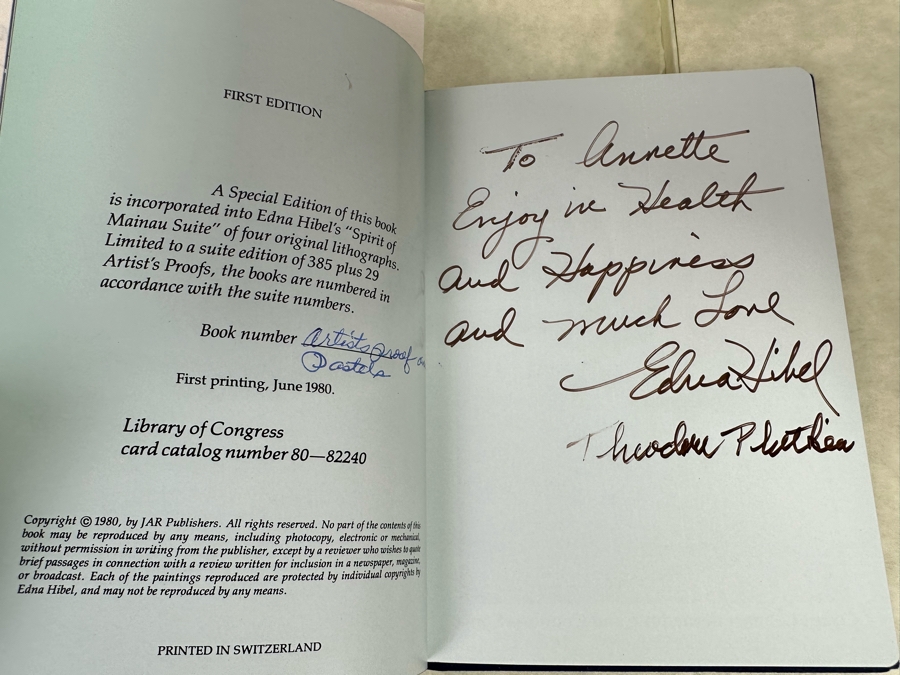 FIRST EDITION
A Special Edition of this book
is incorporated into Edna Hibel's "Spirit of
Mainau Suite" of four original lithographs.
Limited to a suite edition of 385 plus 29
Artist's Proofs, the books are numbered in
accordance with the suite numbers.
Book number Artists proof on
Pastels
First printing, June 1980.
Library of Congress
card catalog number 80—82240
Copyright © 1980, by JAR Publishers. All rights reserved. No part of the contents of this
book may be reproduced by any means, including photocopy, electronic or mechanical,
without permission in writing from the publisher, except by a reviewer who wishes to quote
brief passages in connection with a review written for inclusion in a newspaper, magazine,
or broadcast. Each of the paintings reproduced are protected by individual copyrights by
Edna Hibel, and may not be reproduced by any means.
PRINTED IN SWITZERLAND
To Annette
Enjoy in Health
and Happiness
and much Love
Edna Hibel
Theodore